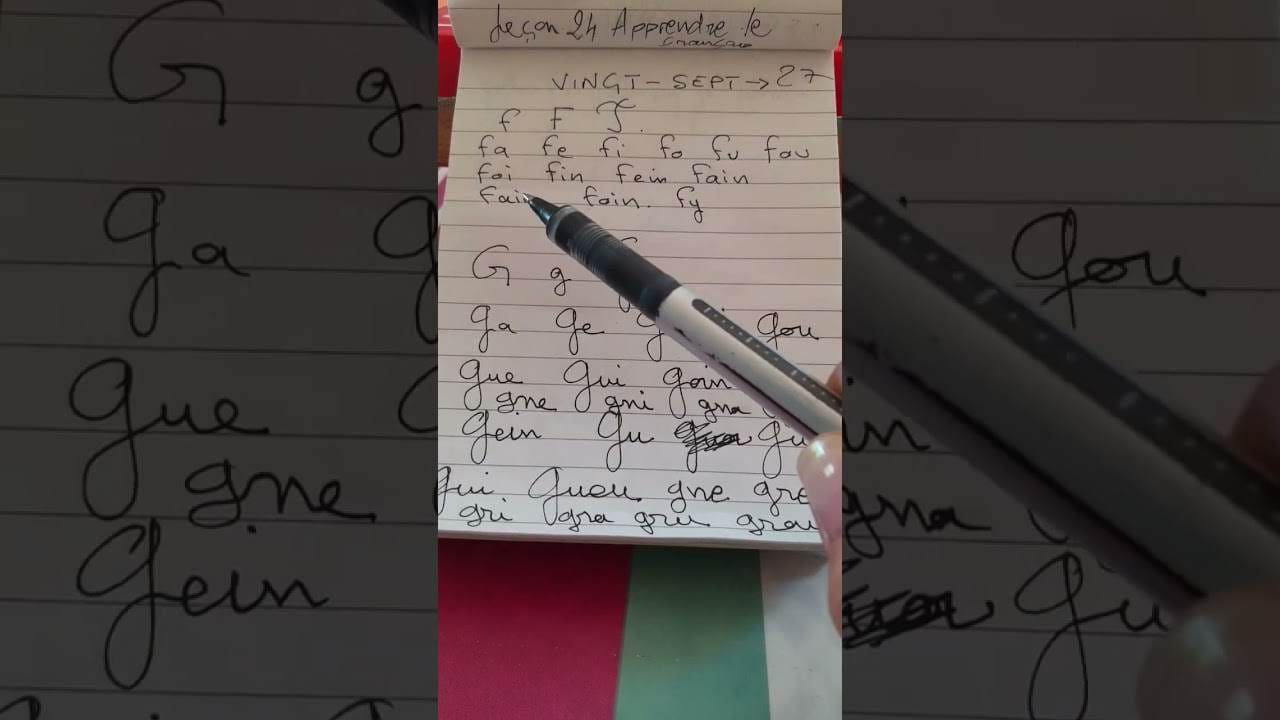 Leçon 24 Apprendre le
français
VINGT-SEPT → 27
f F F
fa fe fi fo fu fou
foi fin fein fain
fain foin. fy
G g
ga ge gou
gue gui goin
gne gni gna
gein gu gu
gui gueu gne gre
gri gra gru grau